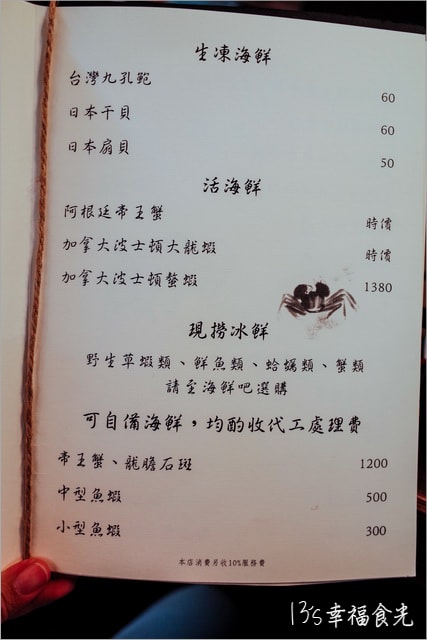 生凍海鮮
台灣九孔鮑 60
日本干貝 60
日本扇貝 50
活海鮮
阿根廷帝王蟹 時價
加拿大波士頓大龍蝦 時價
加拿大波士頓螯蝦 1380
現撈冰鮮
野生草蝦類、鮮魚類、蛤蠣類、蟹類
請至海鮮吧選購
可自備海鮮，均酌收代工處理費
帝王蟹、龍膽石斑 1200
中型魚蝦 500
小型魚蝦 300
本店消費另收10%服務費
13's幸福食光